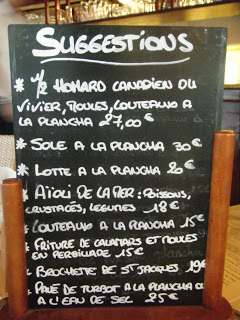 SUGGESTIONS
* 1/2 HOMARD CANADIEN OU
VIVIER, MOULES, COUTEAUX A
LA PLANCHA 27,00€
* SOLE A LA PLANCHA 30€
* LOTTE A LA PLANCHA 20€
* AÏOLI DE LA MER : POISSONS,
CRUSTACÉS, LEGUMES 18€
* COUTEAUX A LA PLANCHA 15€
* FRITURE DE CALAMARS ET MOULES
EN PERSILLADE 15€
* BROCHETTE DE ST JACQUES 19€
* PAVÉ DE TURBOT A LA PLANCHA OU
A L'EAU DE SEL 25€